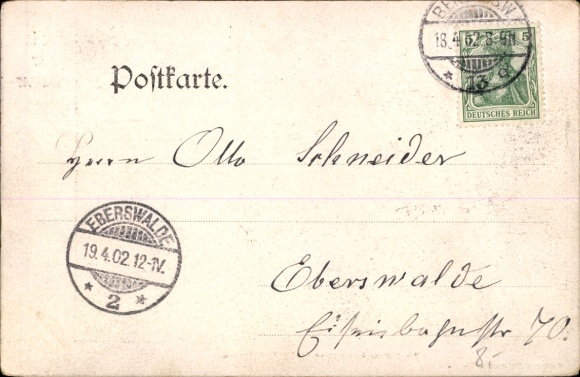 18.4.02.8-9N
13 a
5
DEUTSCHES REICH
Postkarte.
Herrn Otto Schneider
EBERSWALDE
19.4.02.12-1V.
* 2 *
Eberswalde
Eisenbahnstr 70.
8,-